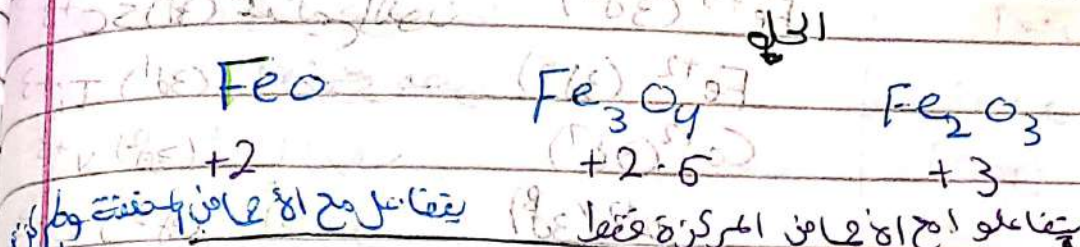 الحلو
FeO Fe₃O₄ Fe₂O₃
+2 +2.6 +3
يتفاعل مع الأحماض المخففة يتفاعلوا مع الأحماض المركزة فقط